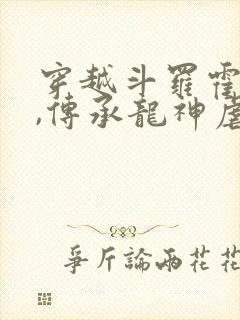 穿越斗羅霍
,傳承龍神虐
爭斤論兩花花